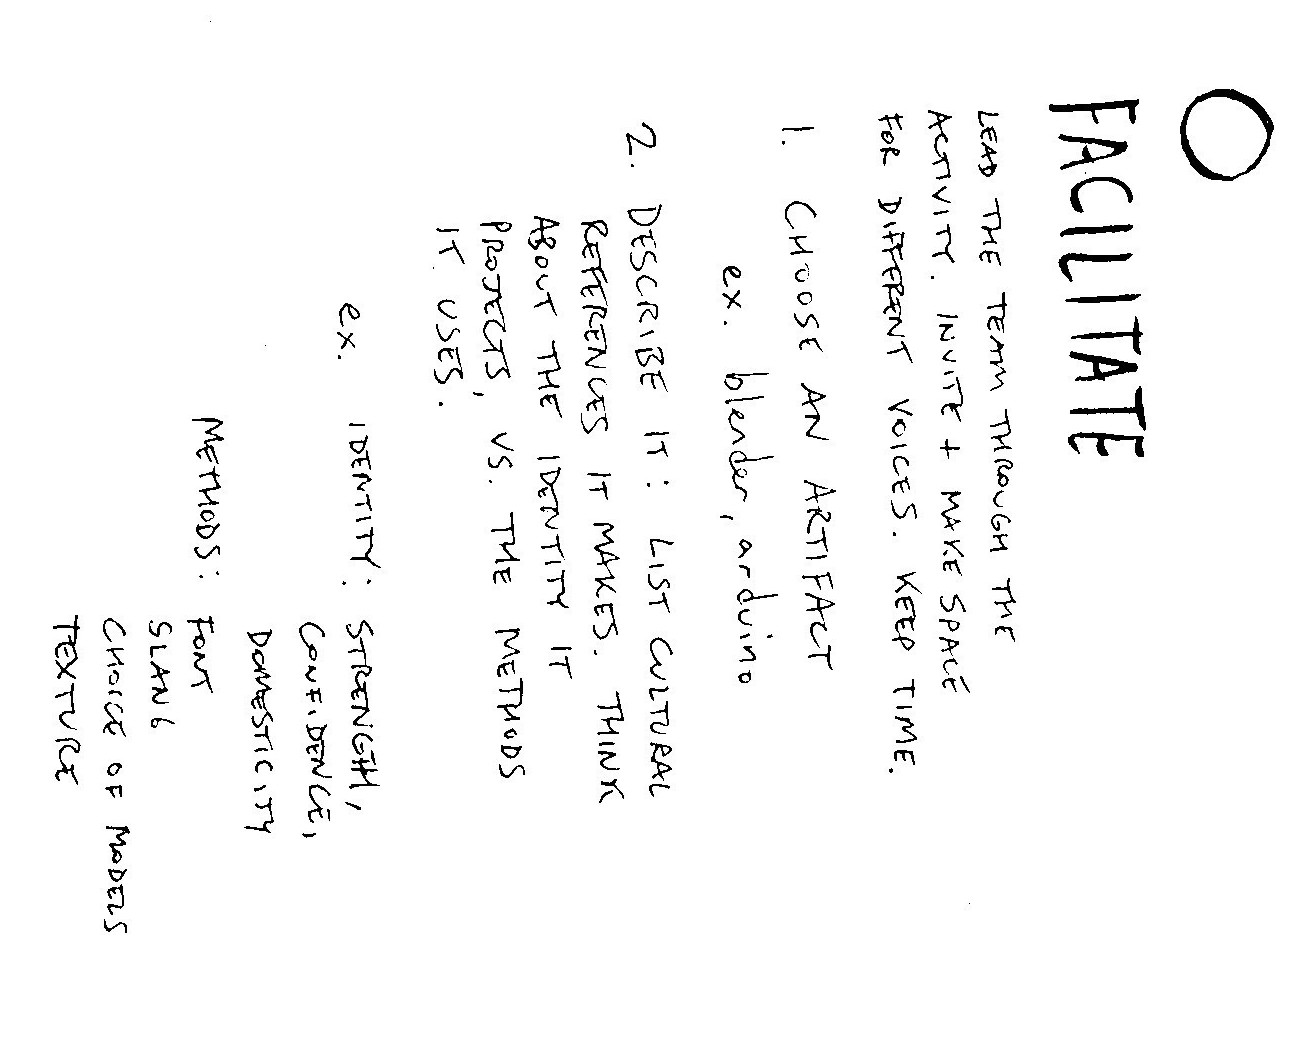 FACILITATE
LEAD THE TEAM THROUGH THE
ACTIVITY. INVITE + MAKE SPACE
FOR DIFFERENT VOICES. KEEP TIME.
1. CHOOSE AN ARTIFACT
ex. blender, arduino
2. DESCRIBE IT: LIST CULTURAL
REFERENCES IT MAKES. THINK
ABOUT THE IDENTITY IT
PROJECTS, VS. THE METHODS
IT USES.
ex. IDENTITY: STRENGTH,
CONFIDENCE,
DOMESTICITY
METHODS: FONT
SLANG
CHOICE OF MODELS
TEXTURE